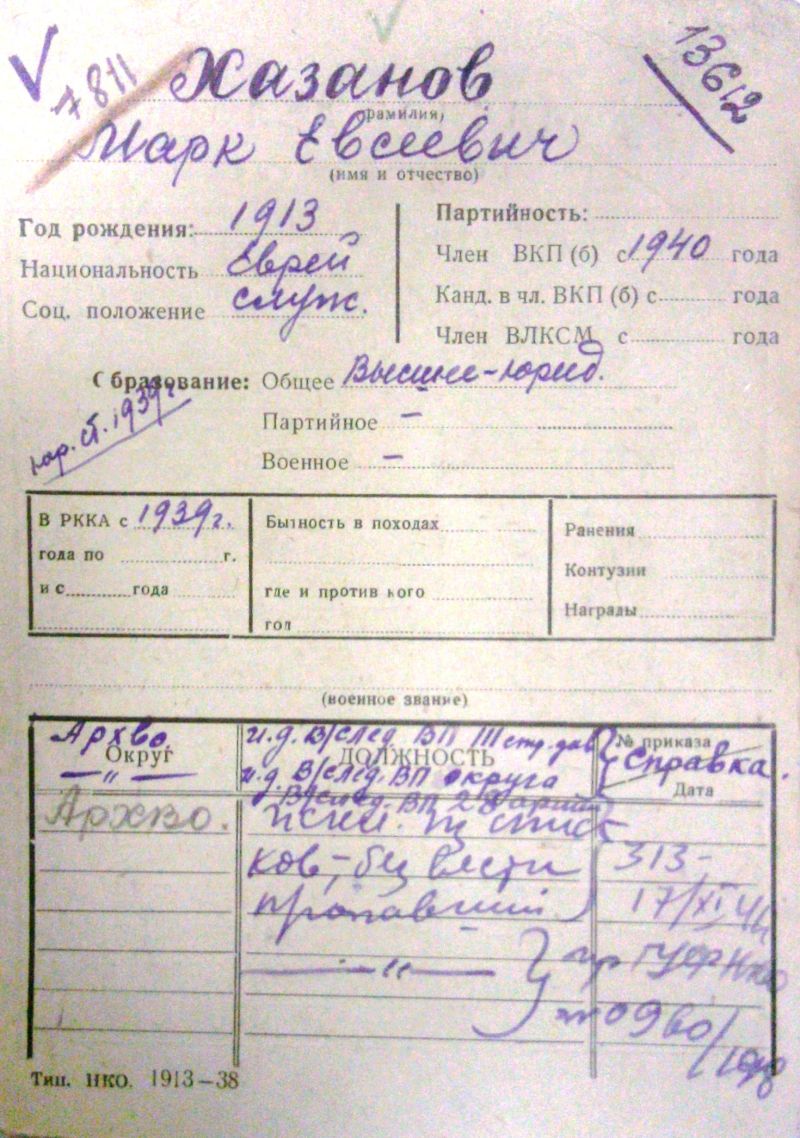 7811
13612
Хазанов
фамилия,
Марк Евсеевич
(имя и отчество)
Год рождения: 1913
Национальность Еврей
Соц. положение служ.
Партийность:
Член ВКП (б) с 1940 года
Канд. в чл. ВКП (б) с года
Член ВЛКСМ с года
Образование: Общее Высшее-юрид.
Партийное —
Военное —
1939 г.
В РККА с 1939 г.
года по г.
и с года
Бытность в походах
где и против кого
год
Ранения
Контузии
Награды
(военное звание)
АрхВО
Округ
— " —
АрхВО.
и.д. В/след. ВП III стр. див
ДОЛЖНОСТЬ
и.д. В/след. ВП округа
В/след. ВП 28 армии
искл. из спис
ков, - без вести
пропавший
— " —
№ приказа
Справка.
Дата
313 -
17/XI
Тип. НКО. 1913—38